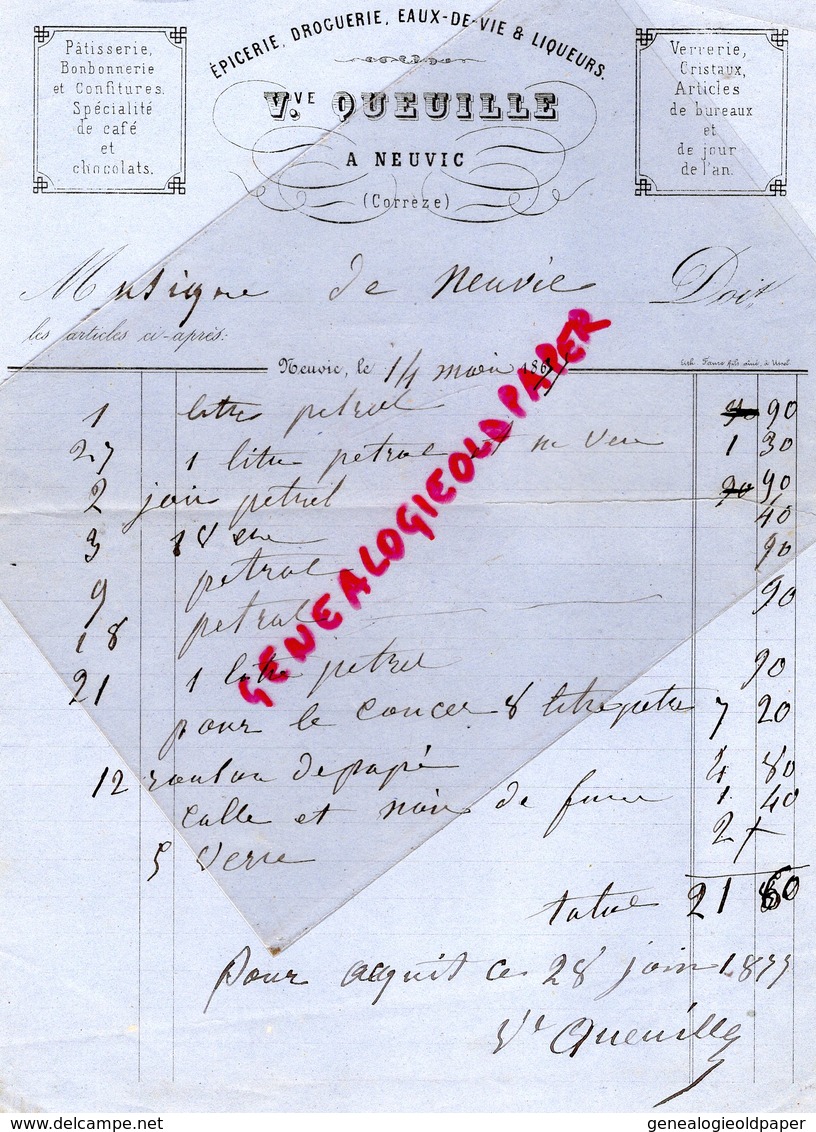 Pâtisserie,
Bonbonnerie
et Confitures.
Spécialité
de café
et
chocolats.
ÉPICERIE, DROGUERIE, EAUX-DE-VIE & LIQUEURS.
V.VE QUEUILLE
A NEUVIC
(Corrèze)
Verrerie,
Cristaux,
Articles
de bureaux
et
de jour
de l'an.
Musique de Neuvic Doit
les articles ci-après:
Neuvic, le 14 mai 187
Lith. Faure fils aîné, à Ussel
1 litre petrol 90
27 1 litre petrol et un Vere 1 30
2 join petrol 90
3 1 Vere 40
9 petrol 90
18 petrol 90
21 1 litre petrol 90
pour le concer 8 litre petro 7 20
12 roulau de papié 4 80
Calle et noir de fumé 1 40
5 Verre 2
total 21 60
Pour acquit ce 28 join 1877
Ve Queuille
GENEALOGIEOLDPAPER
delcampe.net
genealogieoldpaper